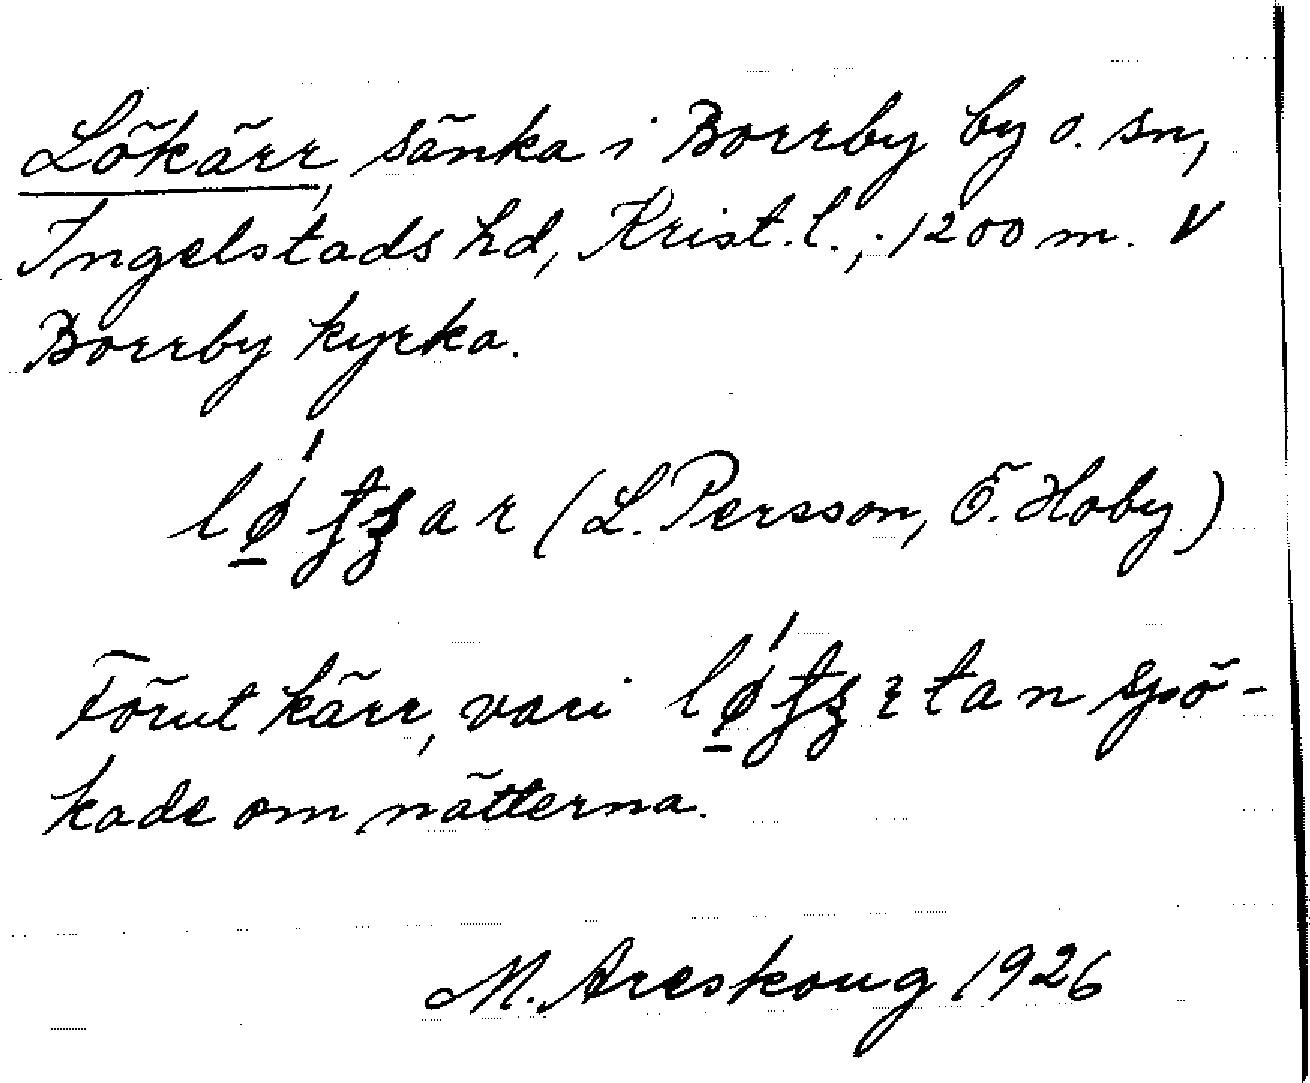 Lökärr, sänka i Borrby by o. sn,
Ingelstads hd, Krist. l., 1200 m. V
Borrby kyrka.
(L. Persson, Ö. Hoby)
Förut kärr, vari spö-
kade om nätterna.
M. Areskoug 1926